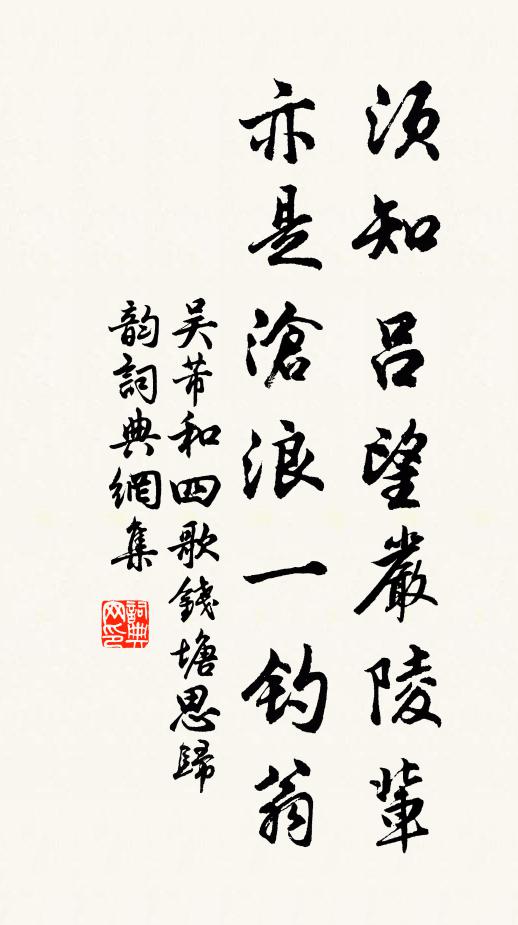 須知呂望嚴陵輩
亦是滄浪一釣翁
吴芾和四歌錢塘思歸
韵詞典網集
詞典
网印